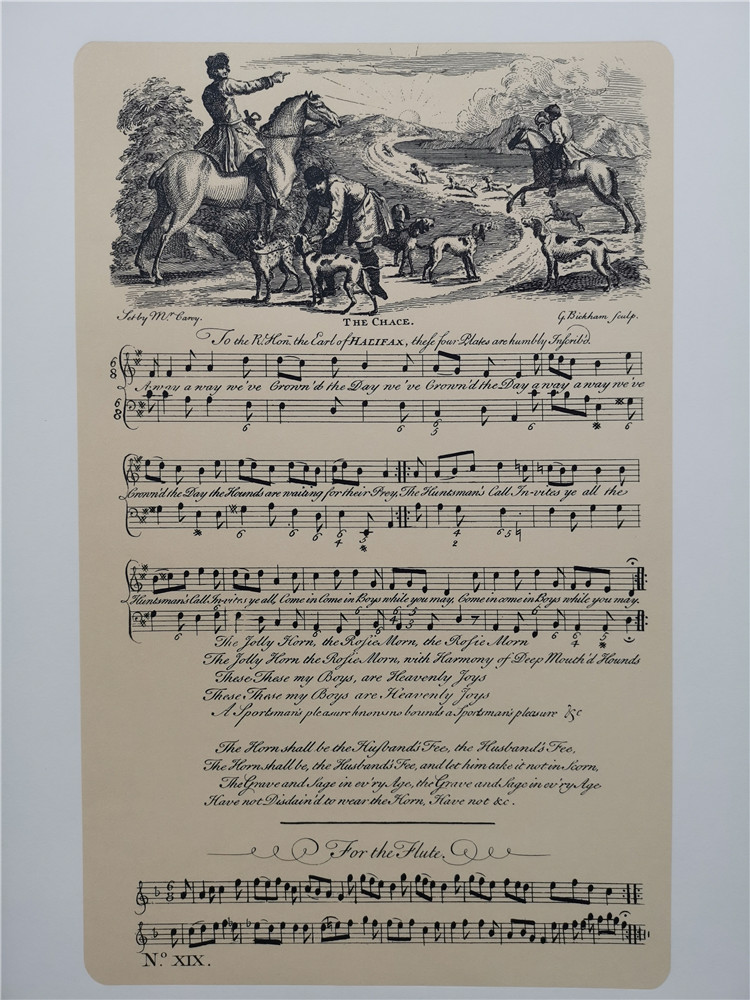 Set by Mr. Carey.
THE CHACE.
G. Bickham sculp.
To the Rt. Hon. the Earl of HALIFAX, these four Plates are humbly Inscrib'd.
6 8
A way a way we've Crown'd the Day we've Crown'd the Day a way a way we've
6 8
6 6 5 6 6
Crown'd the Day the Hounds are waiting for their Prey, The Huntsman's Call In-vites ye all the
6 6 6 6 4 5 4 2 6 5
Huntsman's Call In-vites ye all, Come in Come in Boys while you may, Come in come in Boys while you may.
6 6 6 6 4 5 3 6 6 4 5
The Jolly Horn, the Rosie Morn, the Rosie Morn
The Jolly Horn the Rosie Morn, with Harmony of Deep Mouth'd Hounds
These These my Boys, are Heavenly Joys
These These my Boys are Heavenly Joys
A Sportsman's pleasure knows no bounds a Sportsman's pleasure &c
The Horn shall be the Husband's Fee, the Husband's Fee,
The Horn shall be, the Husband's Fee, and let him take it not in Scorn,
The Grave and Sage in ev'ry Age, the Grave and Sage in ev'ry Age
Have not Disdain'd to wear the Horn, Have not &c.
For the Flute.
6 8
No. XIX.